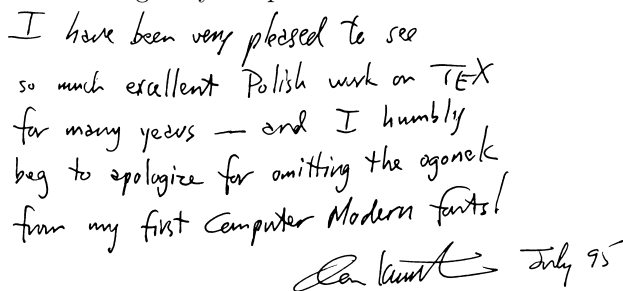 I have been very pleased to see
so much excellent Polish work on TEX
for many years — and I humbly
beg to apologize for omitting the ogonek
from my first Computer Modern fonts!
Don Knuth July 95